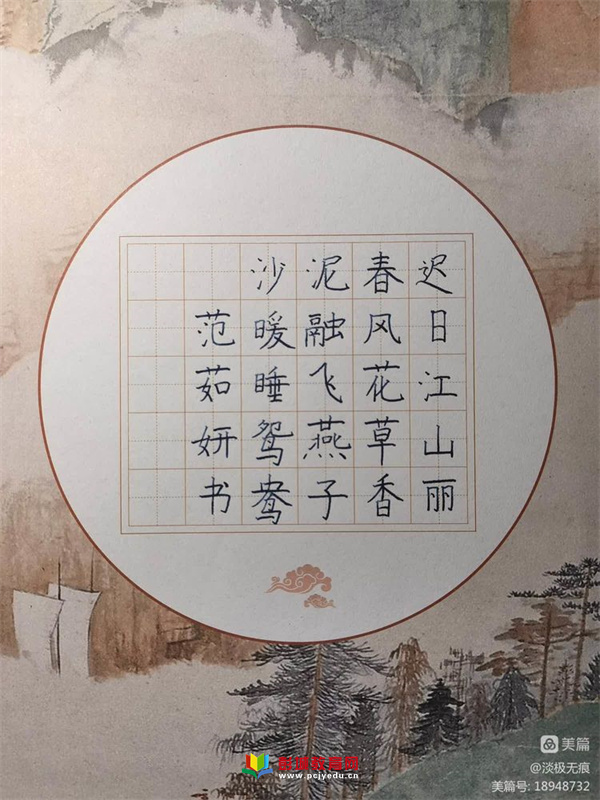 迟日江山丽
春风花草香
泥融飞燕子
沙暖睡鸳鸯
范茹妍书
www.pcjyedu.cn
美篇
@淡极无痕
美篇号: 18948732